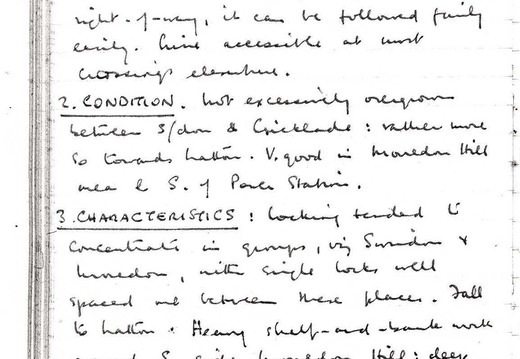 right-of-way, it can be followed fairly
easily. Line accessible at most
crossings elsewhere.
2. CONDITION. Not excessively overgrown
between S/don & Cricklade: rather more
so towards Latton. V. good in Moredon Hill
area & S. of Power Station.
3. CHARACTERISTICS: Locking tended to
concentrate in groups, viz Swindon &
Moredon, with single locks well
spaced out between these places. Fall
to Latton. Heavy shelf-and-bank work
S. side Moredon Hill: deep